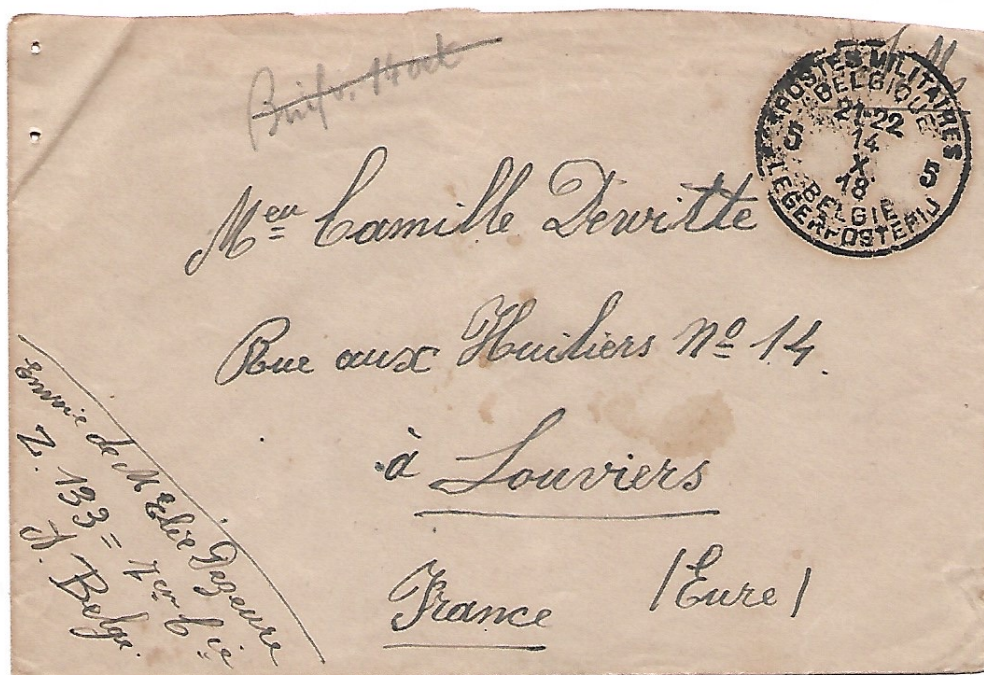 Brief v. 14 oct
POSTES MILITAIRES
BELGIQUE
21-22
14
X
18
5 5
BELGIE
LEGERPOSTERIJ
Meu Camille Dewitte
Rue aux Huiliers Nº 14.
à Louviers
France (Eure)
Envoie de M Elie Dazeure
Z. 133 = 1er Cie
A. Belge.